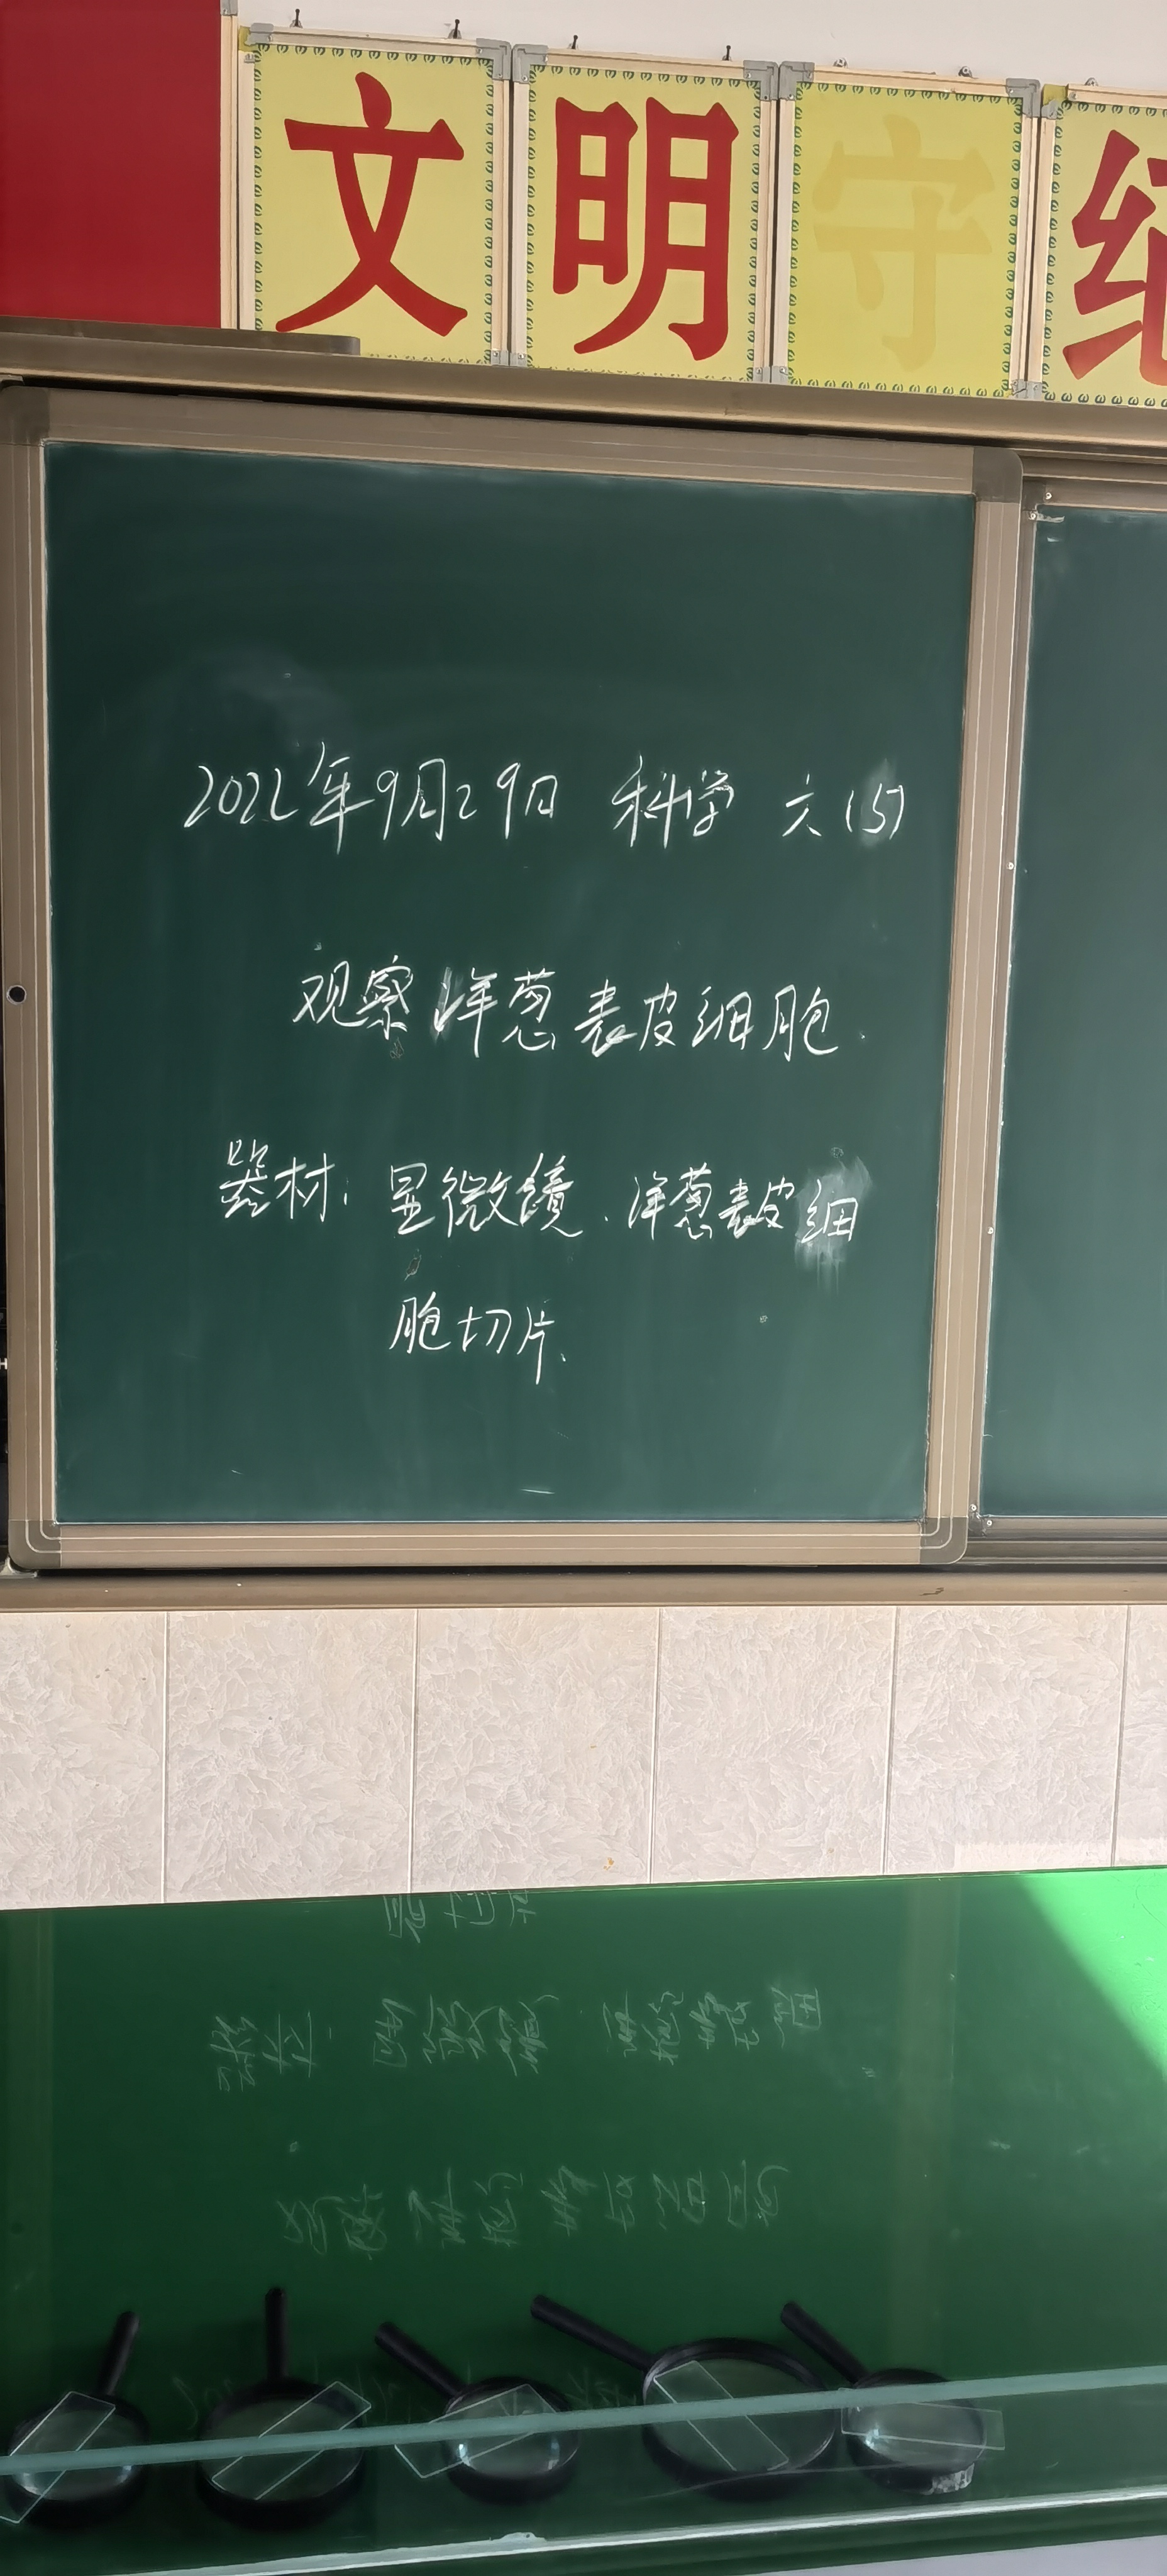 文明守纪
2022年9月29日 科学 六(5)
观察洋葱表皮细胞.
器材: 显微镜、洋葱表皮细
胞切片.